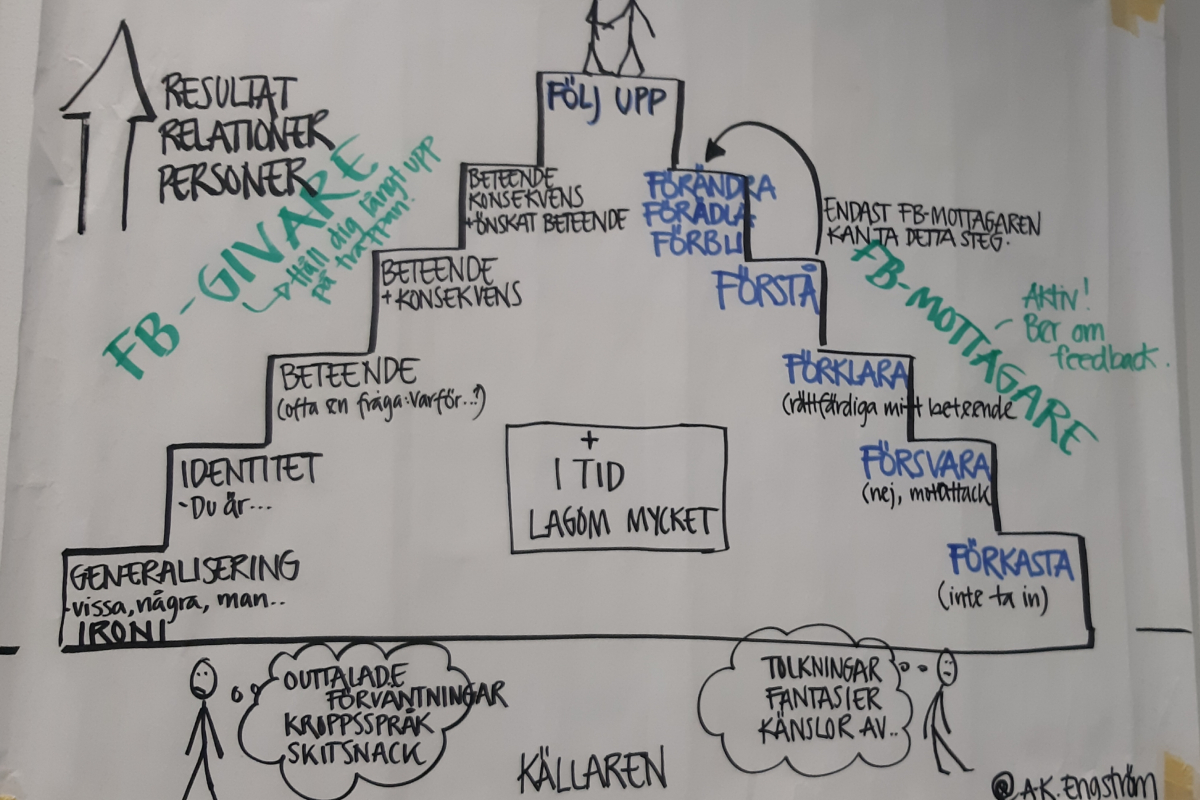 RESULTAT
RELATIONER
PERSONER
FB-GIVARE
Håll dig långt upp
på trappan!
FÖLJ UPP
BETEENDE
KONSEKVENS
+ÖNSKAT BETEENDE
BETEENDE
+KONSEKVENS
BETEENDE
(ofta en fråga: varför..?)
IDENTITET
-Du är...
GENERALISERING
-vissa, några, man..
IRONI
FÖRÄNDRA
FÖRÄDLA
FÖRBLI
ENDAST FB-MOTTAGAREN
KAN TA DETTA STEG.
FÖRSTÅ
FB-MOTTAGARE
Aktiv!
Ber om
feedback.
FÖRKLARA
(rättfärdiga mitt beteende
FÖRSVARA
(nej, motattack
FÖRKASTA
(inte ta in)
+
I TID
LAGOM MYCKET
OUTTALADE
FÖRVÄNTNINGAR
KROPPSSPRÅK
SKITSNACK
TOLKNINGAR
FANTASIER
KÄNSLOR AV..
KÄLLAREN
@A.K.Engström